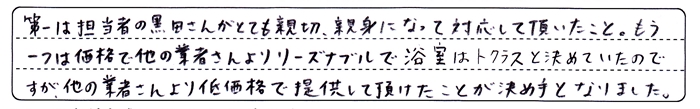 第一は担当者の黒田さんがとても親切、親身になって対応して頂いたこと。もう
一つは価格で他の業者さんよりリーズナブルで浴室はトクラスと決めていたので
すが、他の業者さんより低価格で提供して頂けたことが決め手となりました。